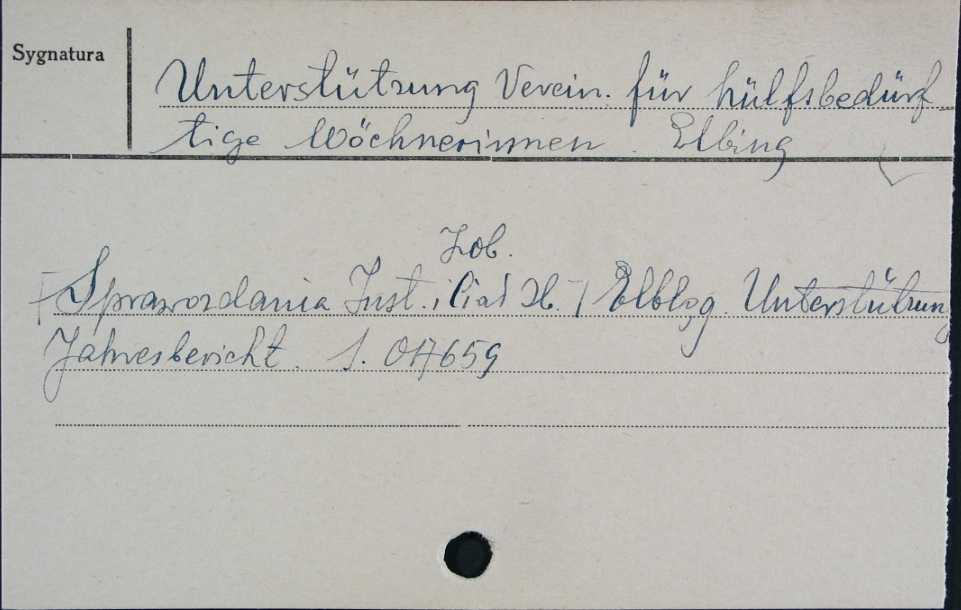 Sygnatura
Unterstützung Verein. für hülfsbedürf-
tige Wöchnerinnen. Elbing
Zob.
[Sprawozdania Inst. i Ciał Zb.] Elbląg. Unterstützung
Jahresbericht. S. 017659